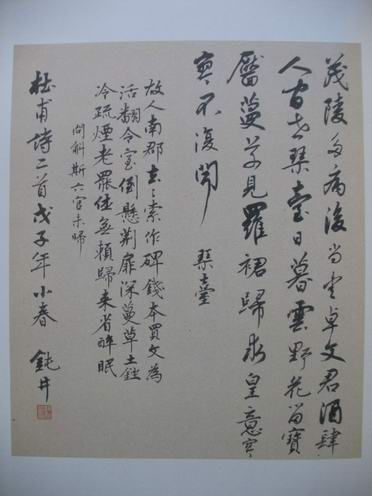 茂陵多病後尚愛卓文君酒肆
人間世琴臺日暮雲野花留寶
靨蔓草見羅裙歸求皇意寥
寥不復聞 琴臺
故人南郡去々索作碑錢本買文為
活翻令室倒懸荊扉深蔓草土銼
冷疏煙老罷休無賴歸来省醉眠
聞斛斯六官未歸
杜甫詩二首戊子年小春 鈍井